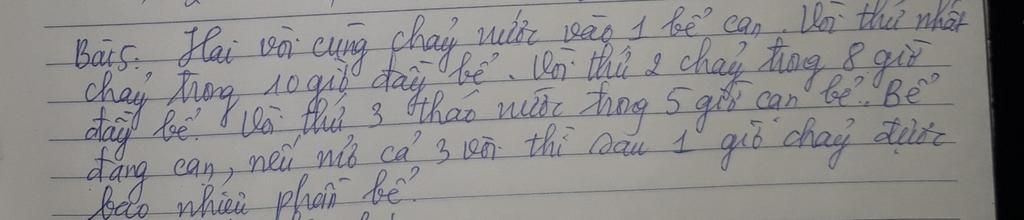 Bài 5: Hai vòi cùng chảy nước vào 1 bể cạn. Vòi thứ nhất
chảy trong 10 giờ đầy bể. Vòi thứ 2 chảy trong 8 giờ
đầy bể. Vòi thứ 3 tháo nước trong 5 giờ cạn bể. Bể
đang cạn, nếu mở cả 3 vòi thì sau 1 giờ chảy được
bao nhiêu phần bể.